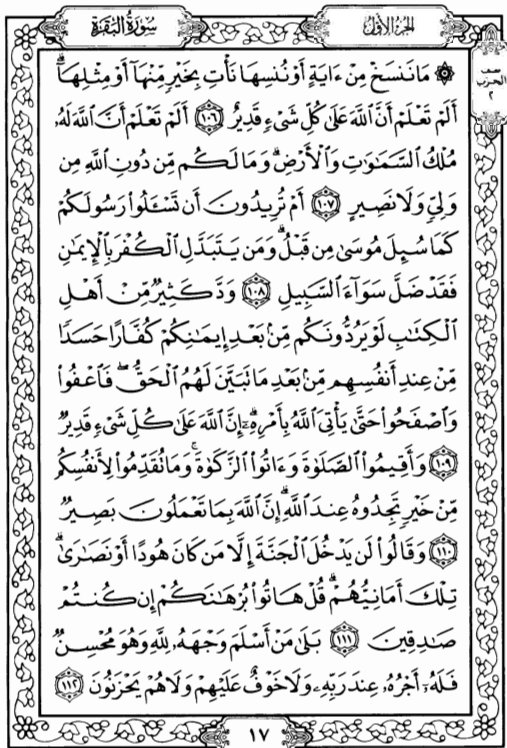 سورة البقرة
الجزء الأول
نصف
الحزب
٢
۞ مَا نَنسَخۡ مِنۡ ءَايَةٍ أَوۡ نُنسِهَا نَأۡتِ بِخَيۡرٖ مِّنۡهَآ أَوۡ مِثۡلِهَآۗ
أَلَمۡ تَعۡلَمۡ أَنَّ ٱللَّهَ عَلَىٰ كُلِّ شَيۡءٖ قَدِيرٌ ١٠٦ أَلَمۡ تَعۡلَمۡ أَنَّ ٱللَّهَ لَهُۥ
مُلۡكُ ٱلسَّمَٰوَٰتِ وَٱلۡأَرۡضِۗ وَمَا لَكُم مِّن دُونِ ٱللَّهِ مِن
وَلِيّٖ وَلَا نَصِيرٍ ١٠٧ أَمۡ تُرِيدُونَ أَن تَسۡـَٔلُواْ رَسُولَكُمۡ
كَمَا سُئِلَ مُوسَىٰ مِن قَبۡلُۗ وَمَن يَتَبَدَّلِ ٱلۡكُفۡرَ بِٱلۡإِيمَٰنِ
فَقَدۡ ضَلَّ سَوَآءَ ٱلسَّبِيلِ ١٠٨ وَدَّ كَثِيرٞ مِّنۡ أَهۡلِ
ٱلۡكِتَٰبِ لَوۡ يَرُدُّونَكُم مِّنۢ بَعۡدِ إِيمَٰنِكُمۡ كُفَّارًا حَسَدٗا
مِّنۡ عِندِ أَنفُسِهِم مِّنۢ بَعۡدِ مَا تَبَيَّنَ لَهُمُ ٱلۡحَقُّۖ فَٱعۡفُواْ
وَٱصۡفَحُواْ حَتَّىٰ يَأۡتِيَ ٱللَّهُ بِأَمۡرِهِۦٓۗ إِنَّ ٱللَّهَ عَلَىٰ كُلِّ شَيۡءٖ قَدِيرٞ
١٠٩ وَأَقِيمُواْ ٱلصَّلَوٰةَ وَءَاتُواْ ٱلزَّكَوٰةَۚ وَمَا تُقَدِّمُواْ لِأَنفُسِكُم
مِّنۡ خَيۡرٖ تَجِدُوهُ عِندَ ٱللَّهِۗ إِنَّ ٱللَّهَ بِمَا تَعۡمَلُونَ بَصِيرٞ
١١٠ وَقَالُواْ لَن يَدۡخُلَ ٱلۡجَنَّةَ إِلَّا مَن كَانَ هُودًا أَوۡ نَصَٰرَىٰۗ
تِلۡكَ أَمَانِيُّهُمۡۗ قُلۡ هَاتُواْ بُرۡهَٰنَكُمۡ إِن كُنتُمۡ
صَٰدِقِينَ ١١١ بَلَىٰ مَنۡ أَسۡلَمَ وَجۡهَهُۥ لِلَّهِ وَهُوَ مُحۡسِنٞ
فَلَهُۥٓ أَجۡرُهُۥ عِندَ رَبِّهِۦ وَلَا خَوۡفٌ عَلَيۡهِمۡ وَلَا هُمۡ يَحۡزَنُونَ ١١٢
١٧